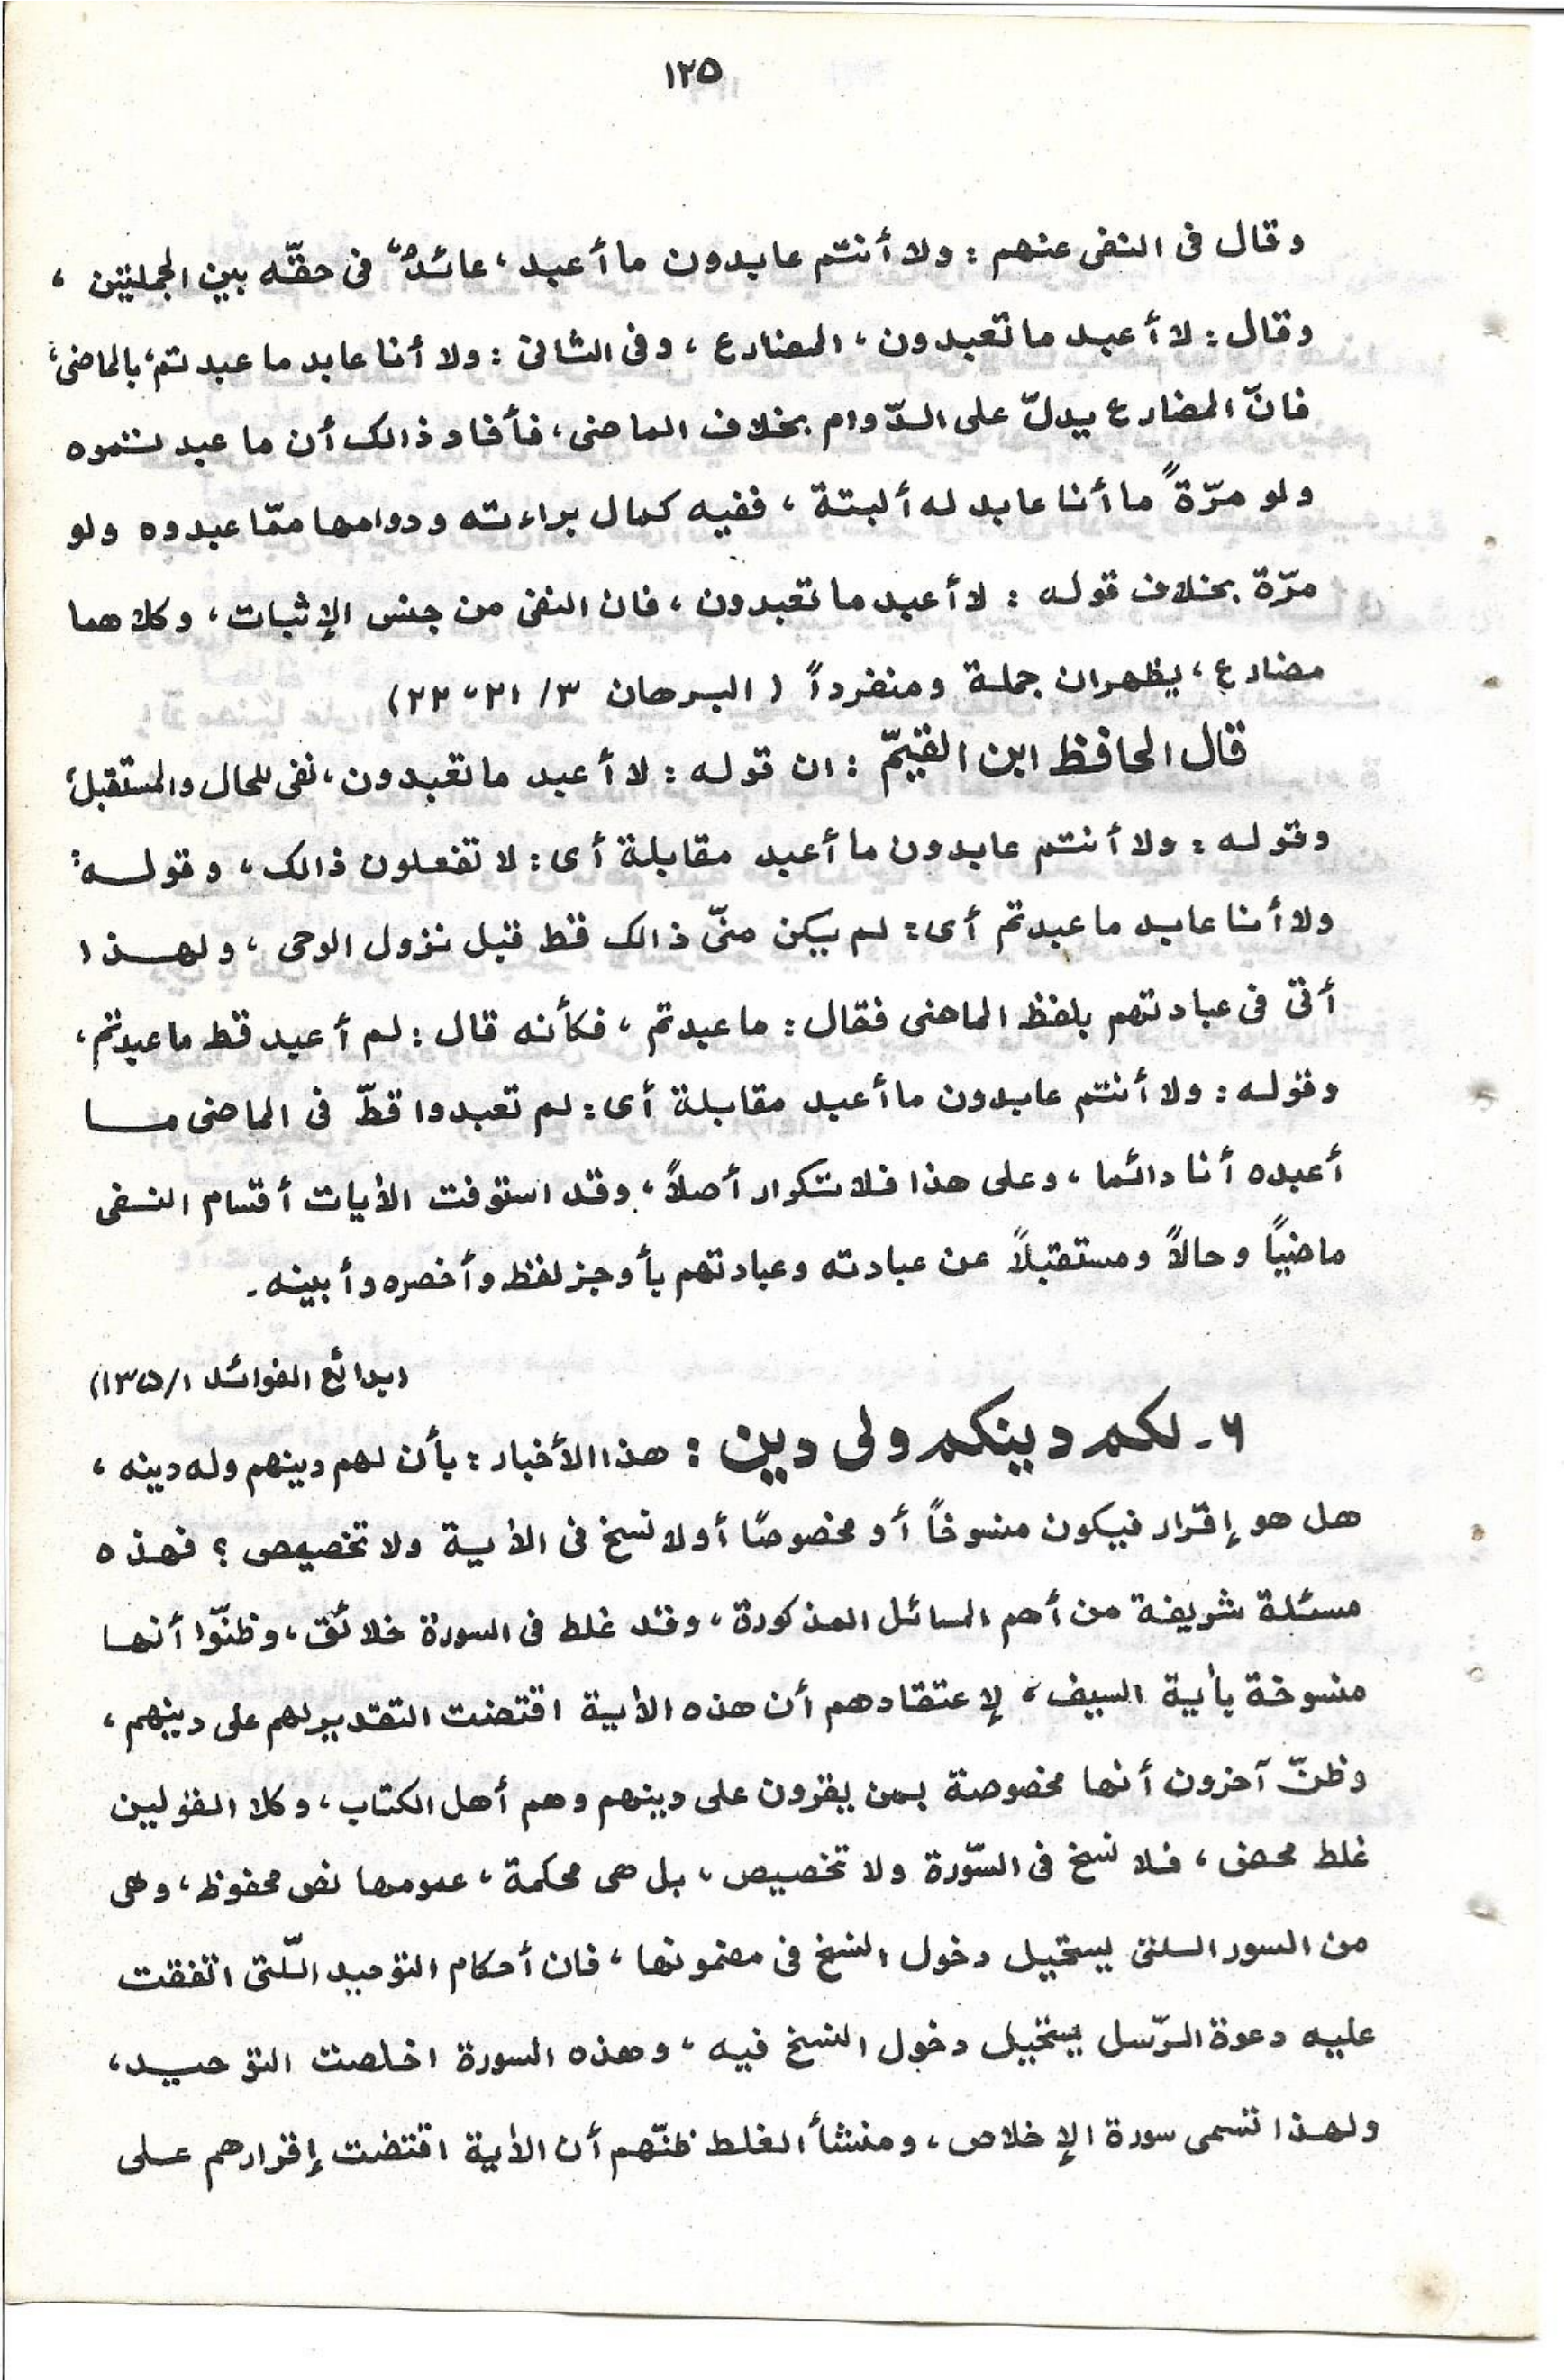 ١٢٥
وقال فى النفى عنهم : ولا أنتم عابدون ما أعبد، عائدٌ، فى حقّه بين الجملتين ،
وقال : لا أعبد ما تعبدون ، المضارع ، وفى الثانى : ولا أنا عابد ما عبدتم، بالماضى،
فانّ المضارع يدلّ على الدّوام بخلاف الماضى ، فأفاد ذالك أن ما عبدتموه
ولو مرّةً ما أنا عابد له ألبتة ، ففيه كمال براءته ودوامها ممّا عبدوه ولو
مرّة بخلاف قوله : لا أعبد ما تعبدون ، فان النفى من جنس الإثبات ، وكلاهما
مضارع ، يظهران جملة ومنفرداً ( البرهان ٣/ ٢١، ٢٢)
قال الحافظ ابن القيّمّ : ان قوله : لا أعبد ما تعبدون ، نفى للحال والمستقبل،
وقوله : ولا أنتم عابدون ما أعبد مقابلة أى : لا تفعلون ذالك ، وقولـه :
ولا أنا عابد ما عبدتم أى : لم يكن منّى ذالك قط قبل نزول الوحى ، ولهـذا
أتى فى عبادتهم بلفظ الماضى فقال : ما عبدتم ، فكأنه قال : لم أعبد قط ما عبدتم ،
وقوله : ولا أنتم عابدون ما أعبد مقابلة أى : لم تعبدوا قطّ فى الماضى مـا
أعبده أنا دائما ، وعلى هذا فلا تكرار أصلاً ، وقد استوفت الأيات أقسام النـفى
ماضيًا وحالاً ومستقبلاً عن عبادته وعبادتهم بأوجز لفظ وأخصره وأبينه ۔
(بدائع الفوائد ١/ ١٣٥)
۶۔ لكم دينكم ولى دين : هذا الأخبار : بأن لهم دينهم وله دينه ،
هل هو إقرار فيكون منسوخاً أو مخصوصًا أو لا نسخ فى الأية ولا تخصيص ؟ فهذه
مسئلة شريفة من أهم المسائل المذكورة ، وقد غلط فى السورة خلائق ، وظنّوا أنها
منسوخة بأية السيف ، لإعتقادهم أن هذه الأية اقتضت التقدير لهم على دينهم ،
وظنّ آخرون أنها مخصوصة بمن يقرون على دينهم وهم أهل الكتاب ، وكلا القولين
غلط محض ، فلا نسخ فى السّورة ولا تخصيص ، بل هى محكمة ، عمومها نص محفوظ ، وهى
من السور الـلتى يستحيل دخول النسخ فى مضمونها ، فان أحكام التوحيد اللّتى اتفقت
عليه دعوة الرّسل يستحيل دخول النسخ فيه ، وهذه السورة اخلصت التوحيـد ،
ولهذا تسمى سورة الإخلاص ، ومنشأ الغلط ظنّهم أن الأية اقتضت إقرارهم عـلى